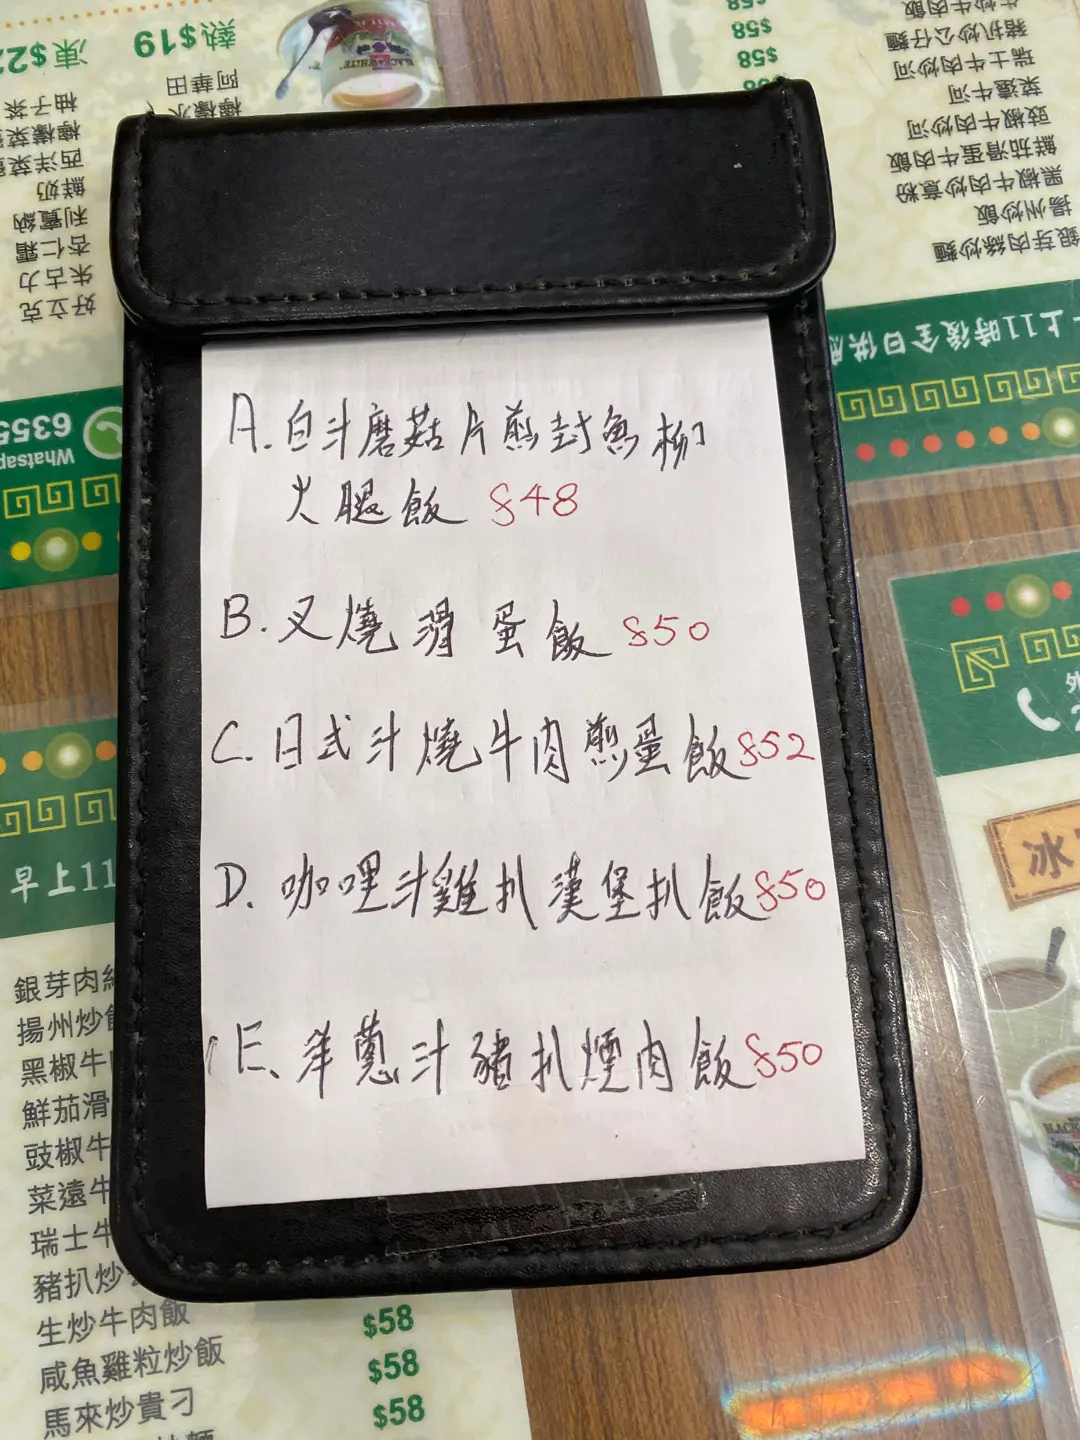 熱$19
凍$2
阿華田
檸檬水
柚子茶
檸檬茶
西洋菜蜜
鮮奶
利賓納
杏仁霜
朱古力
好立克
Whatsapp
6355
BLACK&WHITE
$58
$58
$58
$58
生炒牛肉飯
豬扒炒公仔麵
瑞士牛肉炒河
菜遠牛河
豉椒牛肉炒河
鮮茄滑蛋牛肉飯
黑椒牛肉炒意粉
揚州炒飯
銀芽肉絲炒麵
上11時後全日供應
A.白汁磨菇片煎封魚柳
火腿飯 $48
B.叉燒滑蛋飯 $50
C.日式汁燒牛肉煎蛋飯 $52
D.咖哩汁雞扒漢堡扒飯 $50
E、洋蔥汁豬扒煙肉飯 $50
外
2
冰
BLACK
早上11
銀芽肉絲
揚州炒飯
黑椒牛肉
鮮茄滑
豉椒牛
菜遠牛
瑞士牛
豬扒炒
生炒牛肉飯 $58
咸魚雞粒炒飯 $58
馬來炒貴刁 $58